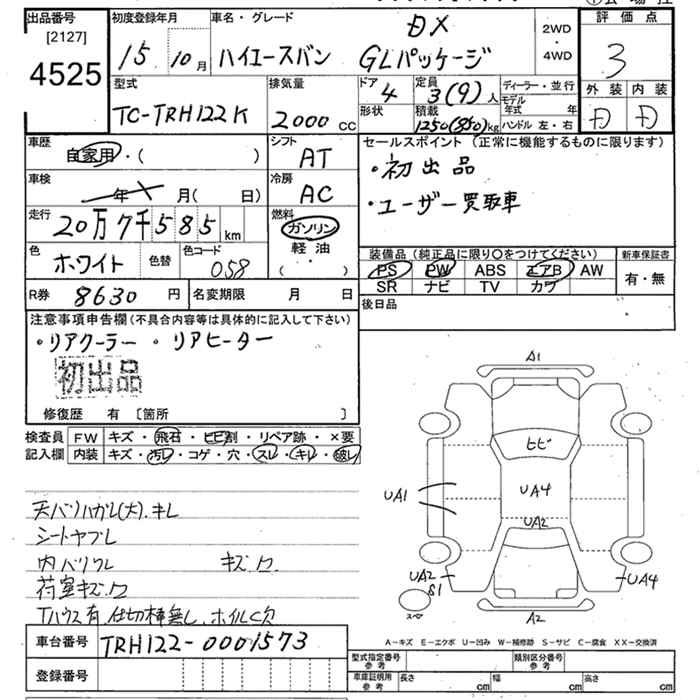 出品番号
[2127]
4525
初度登録年月
15 10月
車名・グレード
ハイエースバン
DX
GLパッケージ
2WD
・
4WD
評価点
3
外装 内装
D D
型式
TC-TRH122K
排気量
2000 CC
ドア
4
形状
定員
3(9)人
積載
1250(850)kg
ディーラー・並行
モデル年式 年
ハンドル 左・右
車歴
自家用・( )
シフト
AT
セールスポイント (正常に機能するものに限ります)
・初出品
・ユーザー買取車
車検
年 月( 日)
冷房
AC
走行
20万7千585km
燃料
ガソリン
軽油
( ・ )
色
ホワイト
色替
色コード
058
装備品 (純正品に限り〇をつけてください)
PS PW ABS エアB AW
SR ナビ TV カワ
新車保証書
有・無
R券 8630円
名変期限 月 日
後日品
注意事項申告欄(不具合内容等は具体的に記入して下さい)
・リアクーラー ・リアヒーター
初出品
修復歴 有〔箇所 〕
検査員記入欄
FW キズ・飛石・ヒビ割・リペア跡・×要
内装 キズ・汚レ・コゲ・穴・スレ・キレ・破レ
天バリハガレ(大).キレ
シートヤブレ
内バリワレ キズ.ワ
荷室キズ.ワ
Tハウス有.仕切棒無し.ホイルC欠
車台番号 TRH122-0001573
登録番号
A1
ヒビ
UA4
UA1
UA2
UA2
S1
UA4
スペ
A2
A-キズ E-エクボ U-凹み W-補修跡 S-サビ C-腐食 XX-交換済
型式指定番号 参考
類別区分番号 参考
車庫証明用 参考
長さ cm 幅 cm 高さ cm